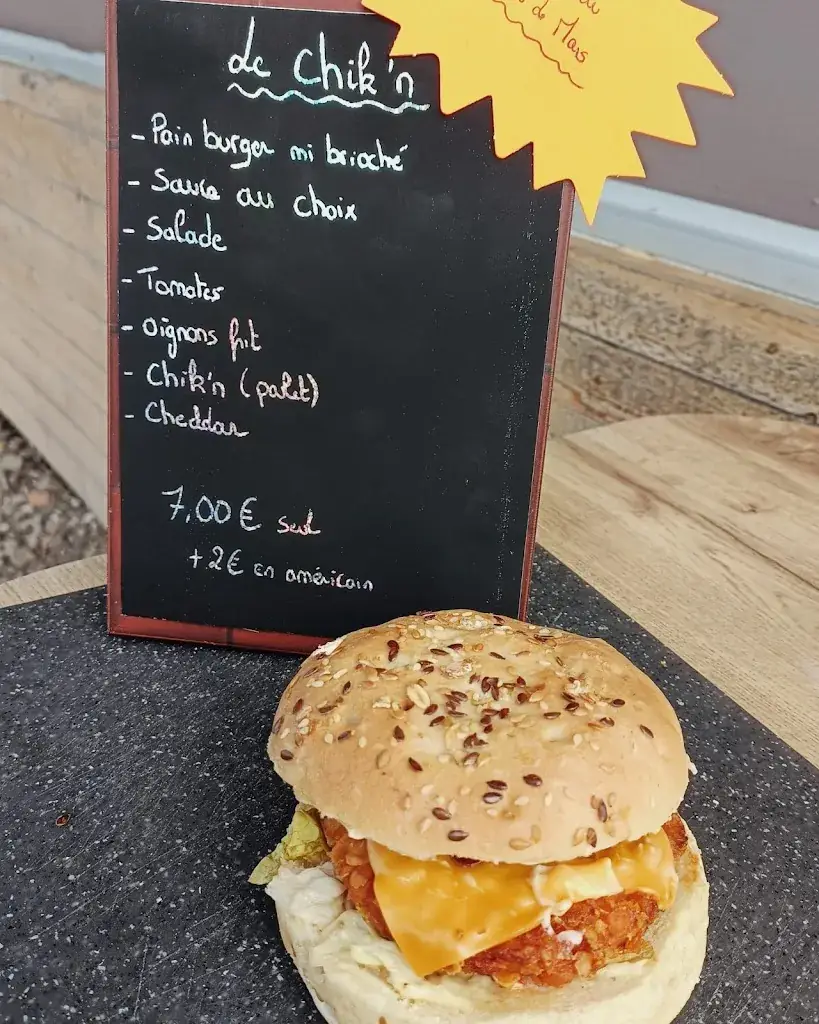 de Mars
Le Chik'n
- Pain burger mi brioché
- Sauce au choix
- Salade
- Tomates
- Oignons frit
- Chik'n (palet)
- Cheddar
7,00 € seul
+ 2€ en américain